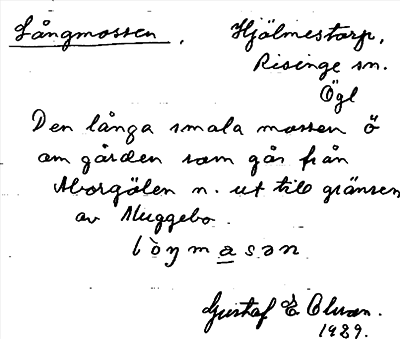 Långmossen, Hjälmestorp,
Risinge sn.
Ögl
Den långa smala mossen ö
om gården som går från
Morgölen n. ut till gränsen
av Muggebo.
lòŋmasən
Gustaf E Olsson.
1929.